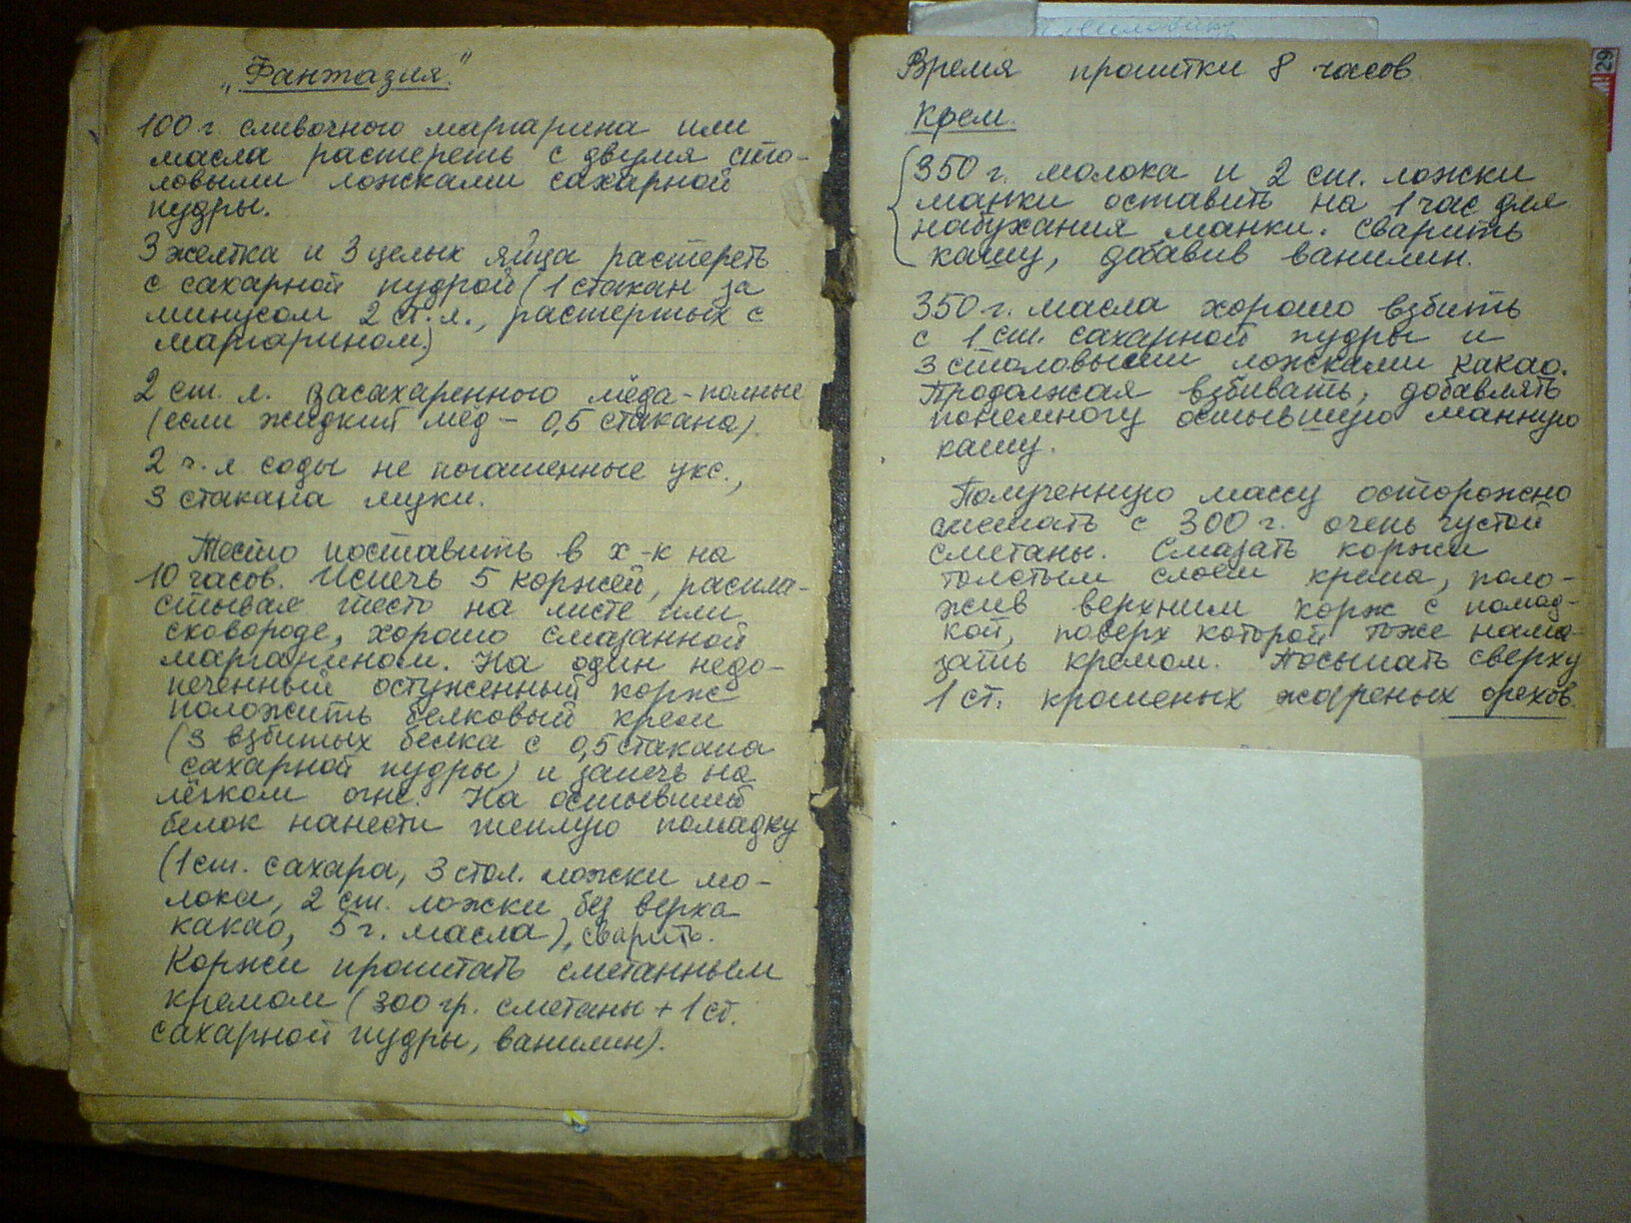 „Фантазия."
100 г. сливочного маргарина или
масла растереть с двумя сто-
ловыми ложками сахарной
пудры.
3 желтка и 3 целых яйца растереть
с сахарной пудрой (1 стакан за
минусом 2 ст. л., растертых с
маргарином)
2 ст. л. засахаренного мёда - полные
(если жидкий мёд - 0,5 стакана).
2 ч. л соды не погашенные укс.,
3 стакана муки.
Тесто поставить в х-к на
10 часов. Испечь 5 коржей, распла-
стывая тесто на листе или
сковороде, хорошо смазанной
маргарином. На один недо-
печенный остуженный корж
положить белковый крем
(3 взбитых белка с 0,5 стакана
сахарной пудры) и запечь на
лёгком огне. На остывший
белок нанести теплую помадку
(1 ст. сахара, 3 стол. ложки мо-
лока, 2 ст. ложки без верха
какао, 5 г. масла), сварить.
Коржи пропитать сметанным
кремом (300 гр. сметаны + 1 ст.
сахарной пудры, ванилин).
Время пропитки 8 часов.
Крем.
350 г. молока и 2 ст. ложки
манки оставить на 1 час для
набухания манки. Сварить
кашу, добавив ванилин.
350 г. масла хорошо взбить
с 1 ст. сахарной пудры и
3 столовыми ложками какао.
Продолжая взбивать, добавлять
понемногу остывшую манную
кашу.
Полученную массу осторожно
смешать с 300 г. очень густой
сметаны. Смазать коржи
толстым слоем крема, поло-
жив верхним корж с помад-
кой, поверх которой тоже нама-
зать кремом. Посыпать сверху
1 ст. крошеных жареных орехов.
29